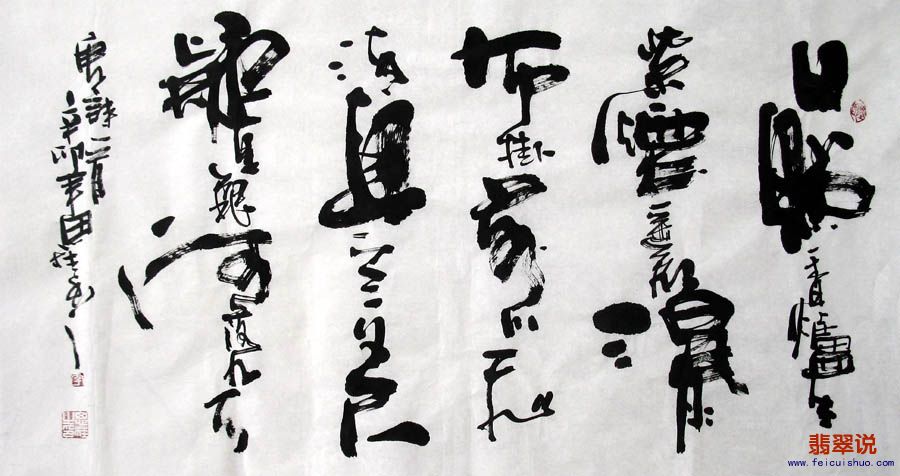 日照香爐生
紫煙遙看瀑
布掛前川飛
流直下三千尺
疑是銀河落九天
唐詩一首
辛卯
翡翠说
www.feicuishuo.com